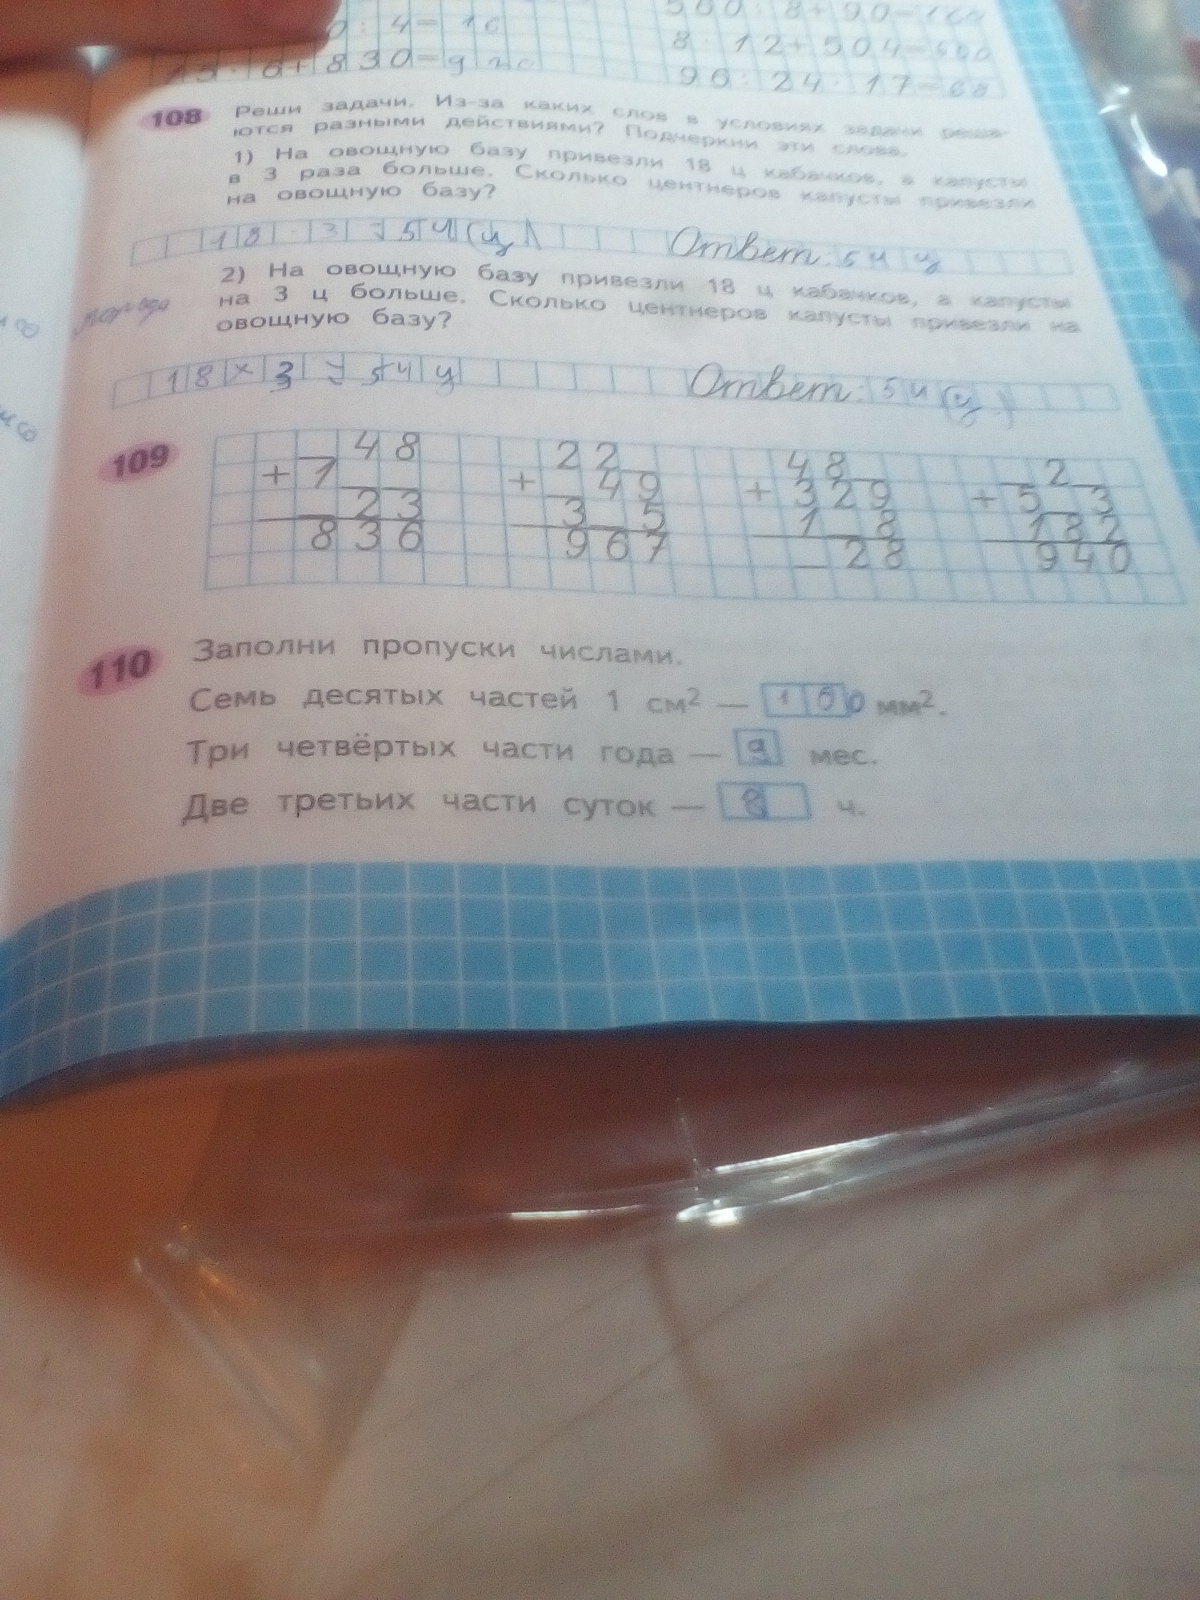 : 4 = 16
+ 830 = 920
8 · 12 + 504 = 600
96 : 24 · 17 = 68
108 Реши задачи. Из-за каких слов в условиях задачи реша-
ются разными действиями? Подчеркни эти слова.
1) На овощную базу привезли 18 ц кабачков, а капусты
в 3 раза больше. Сколько центнеров капусты привезли
на овощную базу?
18 · 3 = 54 (ц) Ответ: 54 ц
2) На овощную базу привезли 18 ц кабачков, а капусты
на 3 ц больше. Сколько центнеров капусты привезли на
овощную базу?
18 × 3 = 54 ц Ответ: 54 (ц)
109
_ 4 8 2 2 _ 4 8 _ _ 2 _
+ 1 _ _ + _ 4 9 + 3 2 9 + 5 _ 3
_ 2 3 3 _ 5 1 _ 8 1 8 2
8 3 6 9 6 7 _ 2 8 9 4 0
110 Заполни пропуски числами.
Семь десятых частей 1 см² — 100 мм².
Три четвёртых части года — 9 мес.
Две третьих части суток — 8 ч.